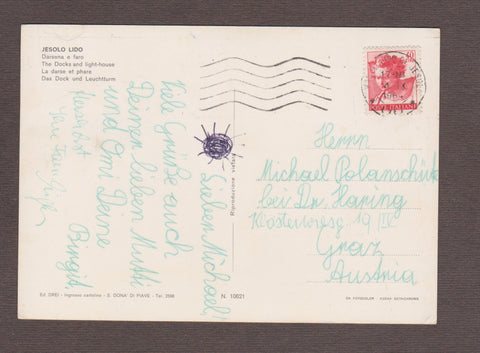 JESOLO LIDO
Darsena e faro
The Docks and light-house
La darse et phare
Das Dock und Leuchtturm
Lieber Michael!
Viele Grüße auch
Deinen lieben Mutti
und Omi Deine
Birgit.
Riproduzione vietata
Ed. DREI - Ingrosso cartoline - S. DONA' DI PIAVE - Tel. 2598
N. 10621
60
POSTE ITALIANE
Herrn
Michael Polanschütz
bei Dr. Haring
Klosterwiesg. 19/IV
Graz
Austria